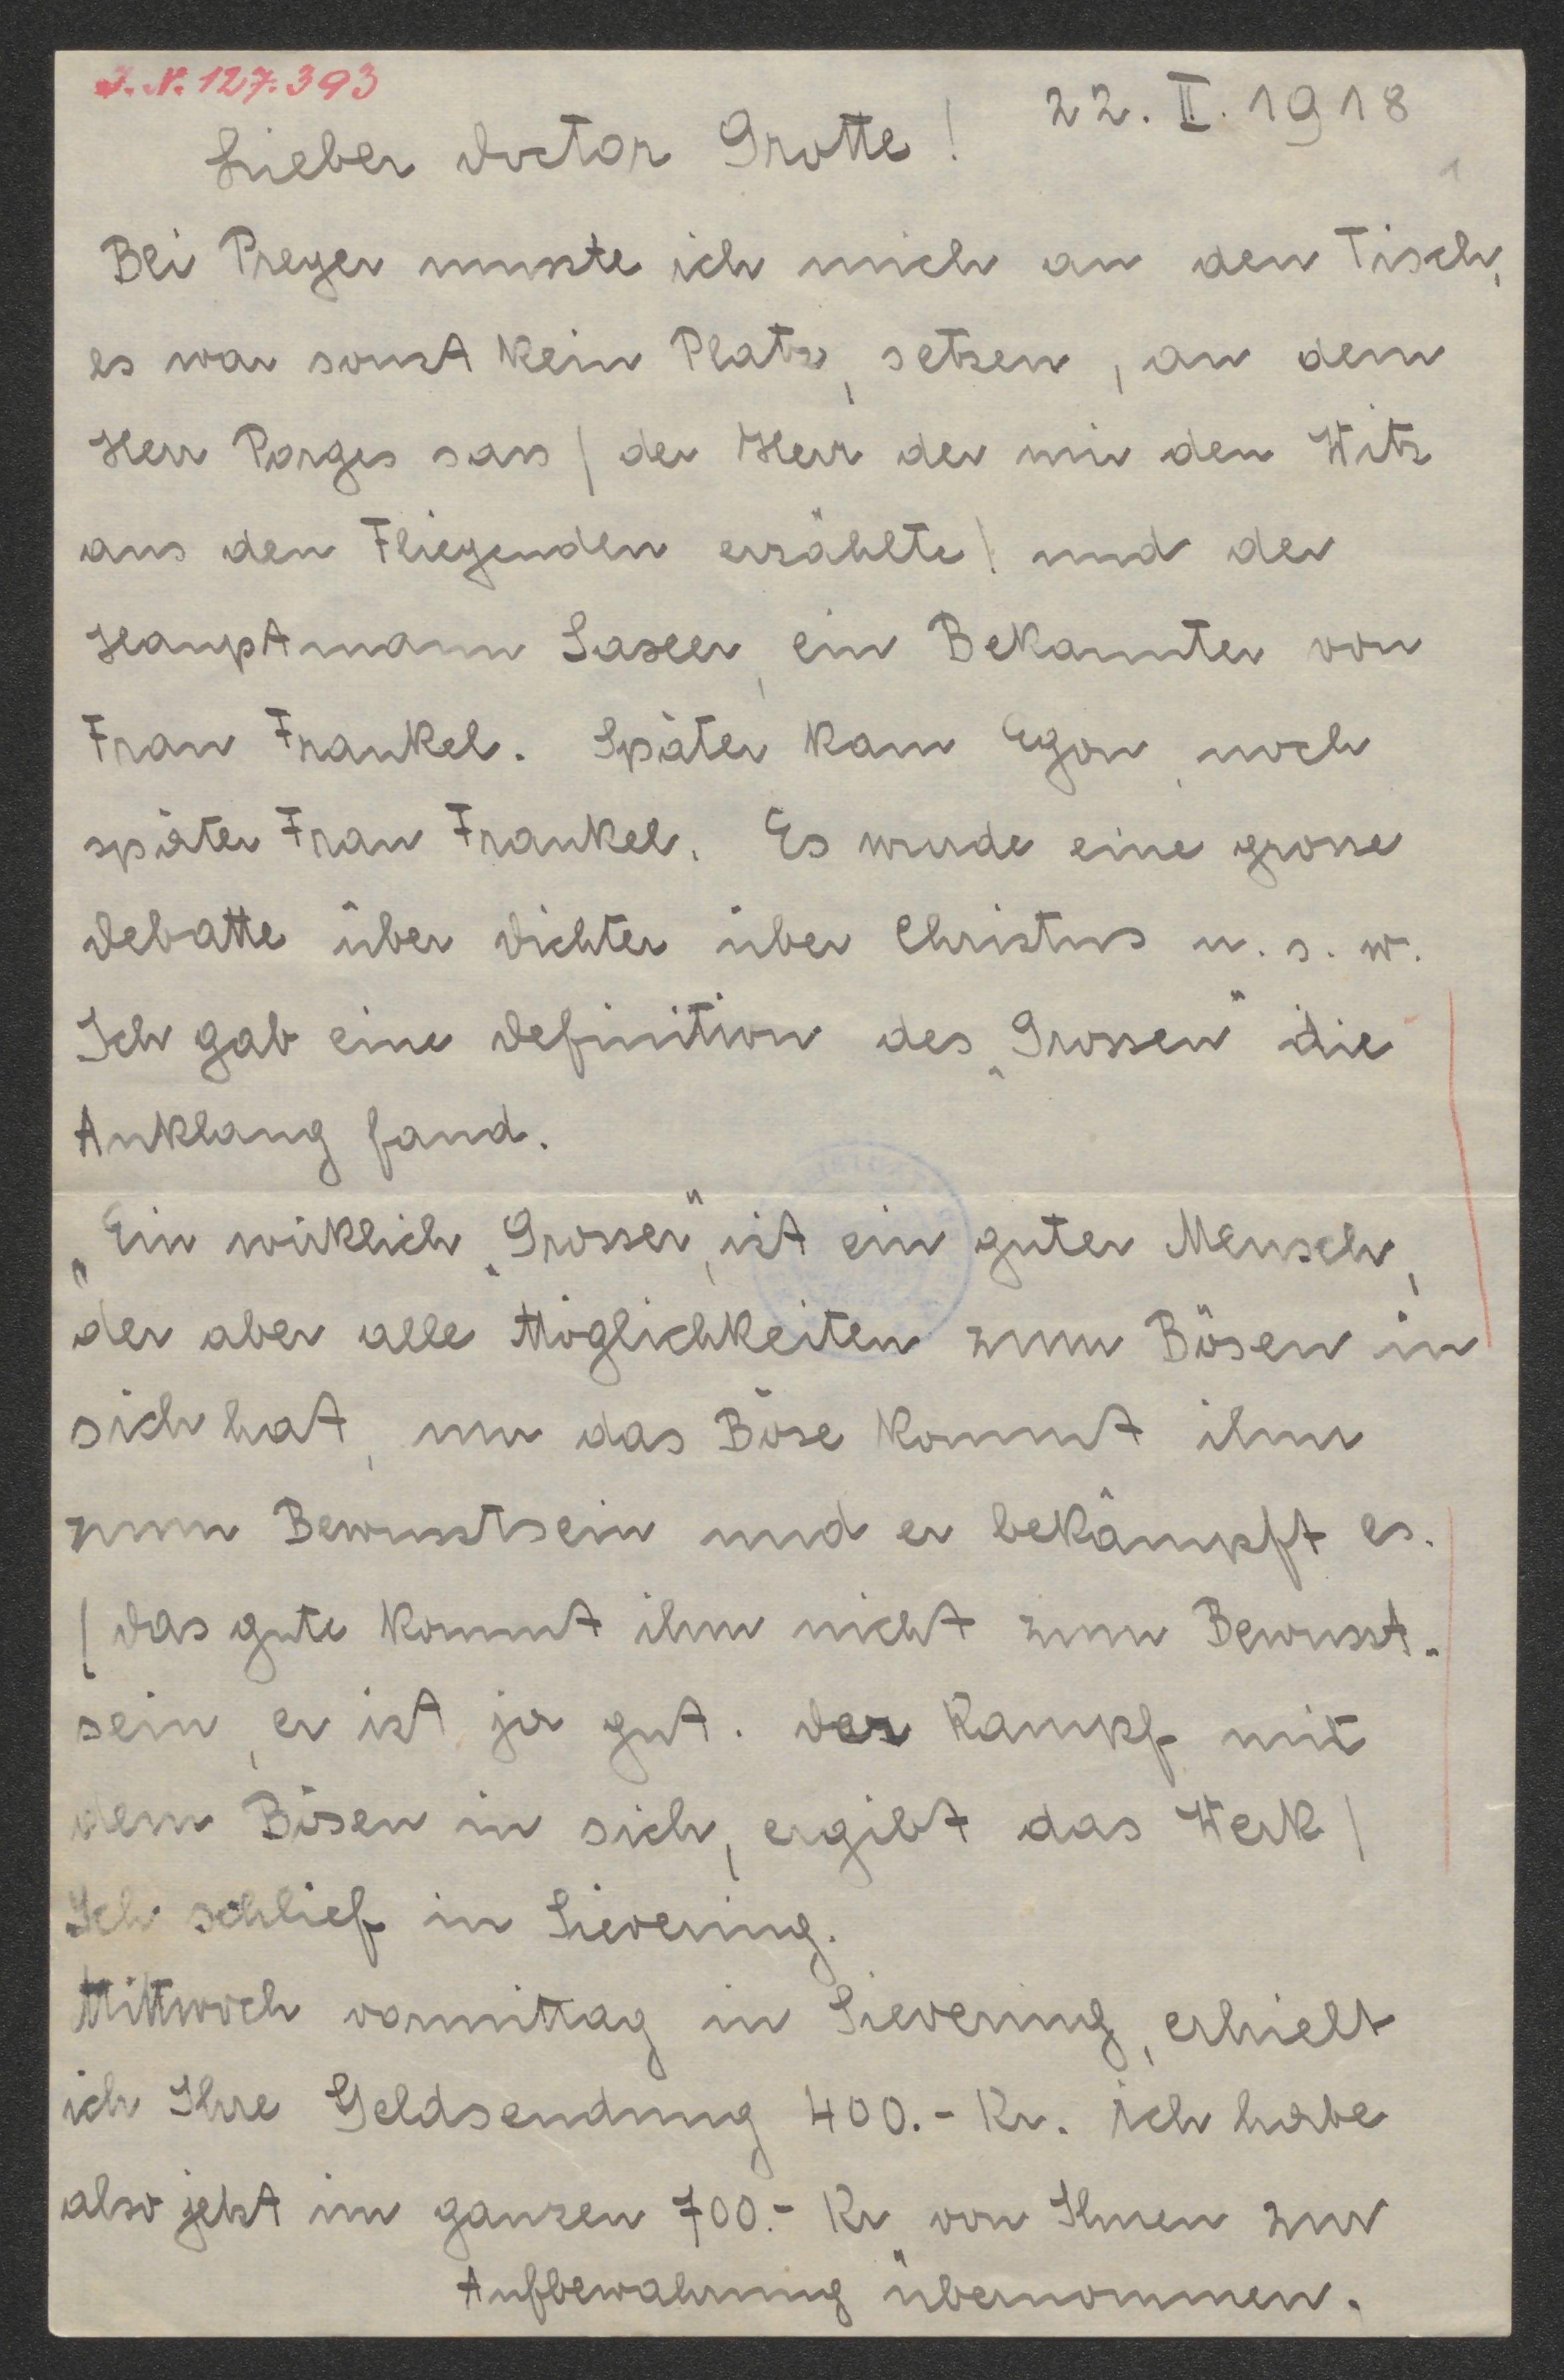 J. N. 127.393
22. II. 1918
Lieber Doctor Grotte!
Bei Preyer musste ich mich an den Tisch,
es war sonst kein Platz, setzen, an dem
Herr Porges sass / der Herr der mir den Witz
aus den Fliegenden erzählte / und der
Hauptmann ein Bekannter von
Frau Frankel. Später kam Egon, noch
später Frau Frankel. Es wurde eine grosse
Debatte über Dichter über Christus u. s. w.
Ich gab eine Definition des „Grossen" die
Anklang fand.
„Ein wirklich „Grosser", ist ein guter Mensch,
der aber alle Möglichkeiten zum Bösen in
sich hat, nur das Böse kommt ihm
zum Bewusstsein und er bekämpft es.
/ Das gute kommt ihm nicht zum Bewusst-
sein, er ist ja gut. Der Kampf mit
dem Bösen in sich, ergibt das Werk /
Ich schlief in Sievering.
Mittwoch vormittag in Sievering, erhielt
ich Ihre Geldsendung 400.- Kr. ich habe
also jetzt im ganzen 700.- Kr von Ihnen zur
Aufbewahrung übernommen.